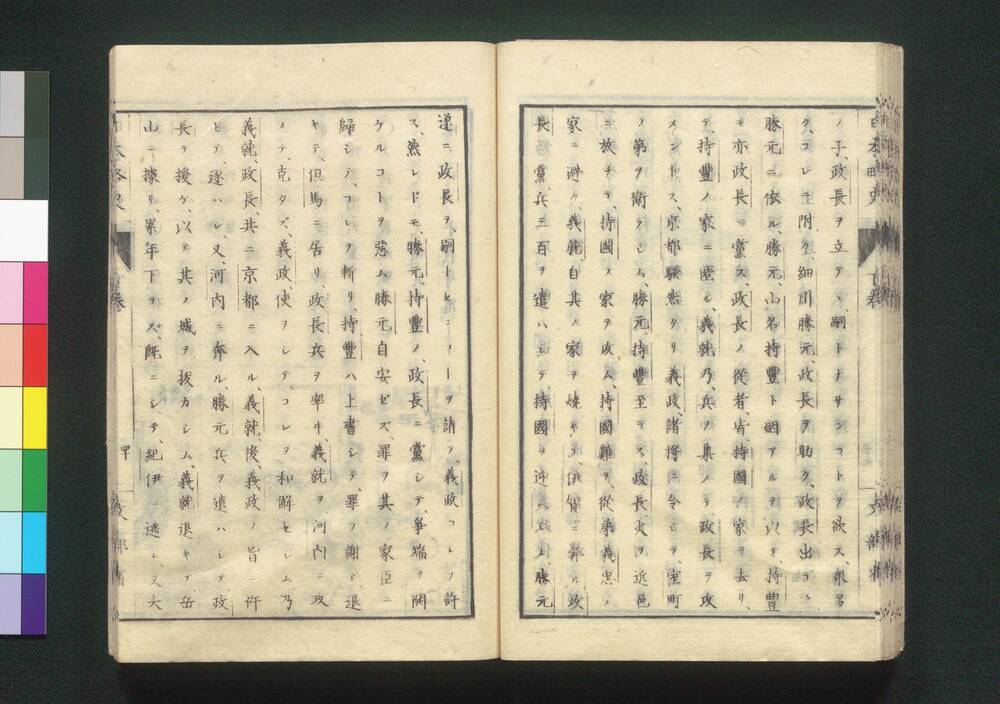 ノ子、政長ヲ立テヽ、嗣トナサンコトヲ欲ス、衆多
ク、コレニ附ク、細川勝元、政長ヲ助ク、政長出テヽ、
勝元ニ依ル、勝元、山名持豐ト姻アルヲ以テ、持豐
モ亦政長ニ黨ス、政長ノ從者、皆持國ノ家ヲ去リ、
テ、持豐ノ家ニ匿ル、義就乃、兵ヲ集メテ、政長ヲ攻
メントス、京都騷然タリ、義政、諸將ニ令シテ、室町
ノ第ヲ衛ラシム、勝元、持豐至ラズ、政長火ヲ近邑
ニ放チテ、持國ノ家ヲ攻ム、持國難ヲ、從弟義忠ノ
家ニ避ク、義就自其ノ家ヲ燒キテ、伊賀ニ奔ル、政
長黨、兵三百ヲ遣ハシテ、持國ヲ迎ヘ
遂ニ、政長ヲ嗣
ヲ請フ、義政コレヲ許
ス、然レドモ、勝元、持豐ノ、政長ニ黨シテ、爭端ヲ開
ケルコトヲ惡ム、勝元自安ゼズ、罪ヲ其ノ家臣ニ
歸シテ、コレヲ斬リ、持豐ハ上書シテ、罪ヲ謝シ、退
キテ、但馬ニ居リ、政長兵ヲ率ヰ、義就ヲ河内ニ攻
メテ、克タズ、義政、使ヲシテ、コレヲ和解セシム、乃
義就、政長、共ニ京都ニ入ル、義就、後、義政ノ旨ニ忤
ヒテ、逐ハレ、又、河内ニ奔ル、勝元兵ヲ遣ハシテ、政
長ヲ援ケ、以テ其ノ城ヲ拔カシム、義就退キテ、岳
山ニ據リ、累年下ラズ、既ニシテ、紀伊ニ逃レ、又大